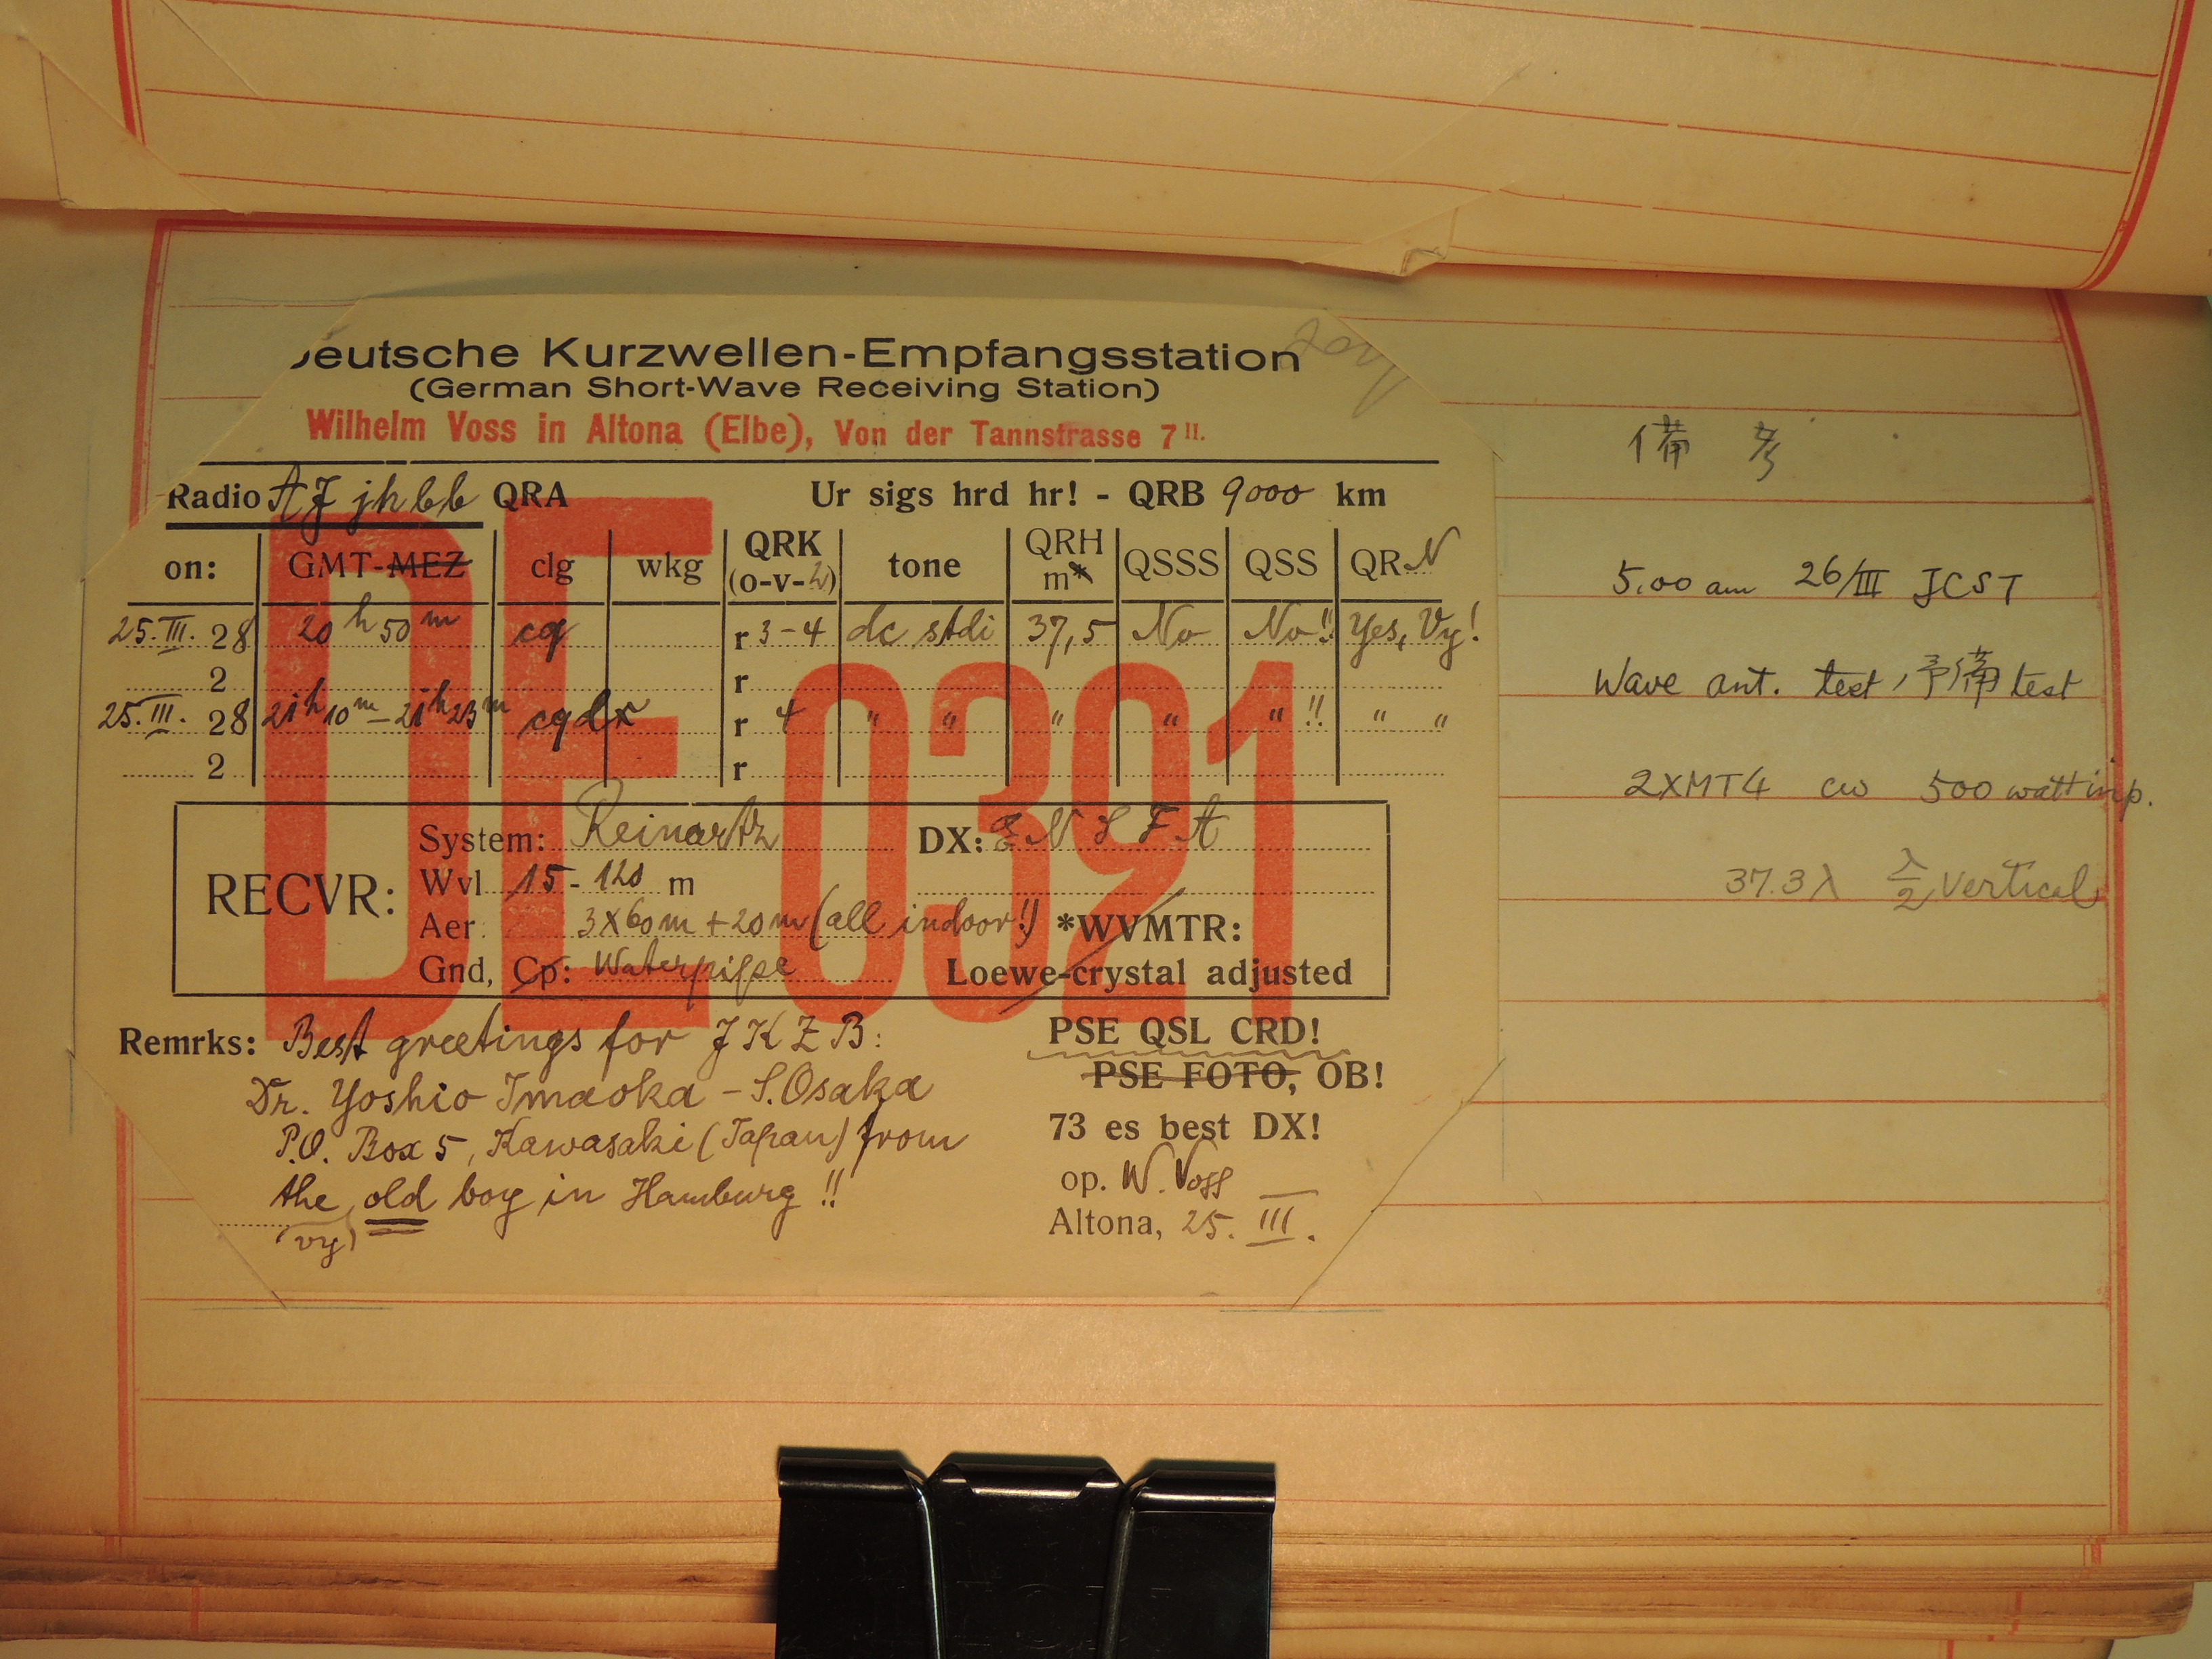 eutsche Kurzwellen-Empfangsstation
(German Short-Wave Receiving Station)
Wilhelm Voss in Altona (Elbe), Von der Tannstrasse 7 II.
Radio AJ jhbb QRA Ur sigs hrd hr! - QRB 9000 km
on: GMT-MEZ clg wkg QRK (o-v-2) tone QRH m* QSSS QSS QRN
25.III. 28 20 h 50 m cq r 3-4 dc stdi 37,5 No No!! Yes, Vy!
2 r
25.III. 28 21 h 10 m - 21 h 23 m cq dx r 4 " " " " " !! " "
2 r
DE 0321
RECVR:
System: Reinartz
Wvl 15 - 120 m
Aer. 3X60m + 20m (all indoor!)
Gnd, Cp: Waterpipe
DX: NSFA
*WVMTR:
Loewe-crystal adjusted
Remrks: Best greetings for JKZB:
Dr. Yoshio Imaoka - S.Osaka
P.O. Box 5, Kawasaki (Japan) from
the old boy in Hamburg !!
(vy)
PSE QSL CRD!
PSE FOTO, OB!
73 es best DX!
op. W. Voss
Altona, 25. III.
備考
5.00 am 26/III JCST
Wave ant. test, 予備 test
2XMT4 cw 500 watt inp.
37.3λ λ/2 Vertical